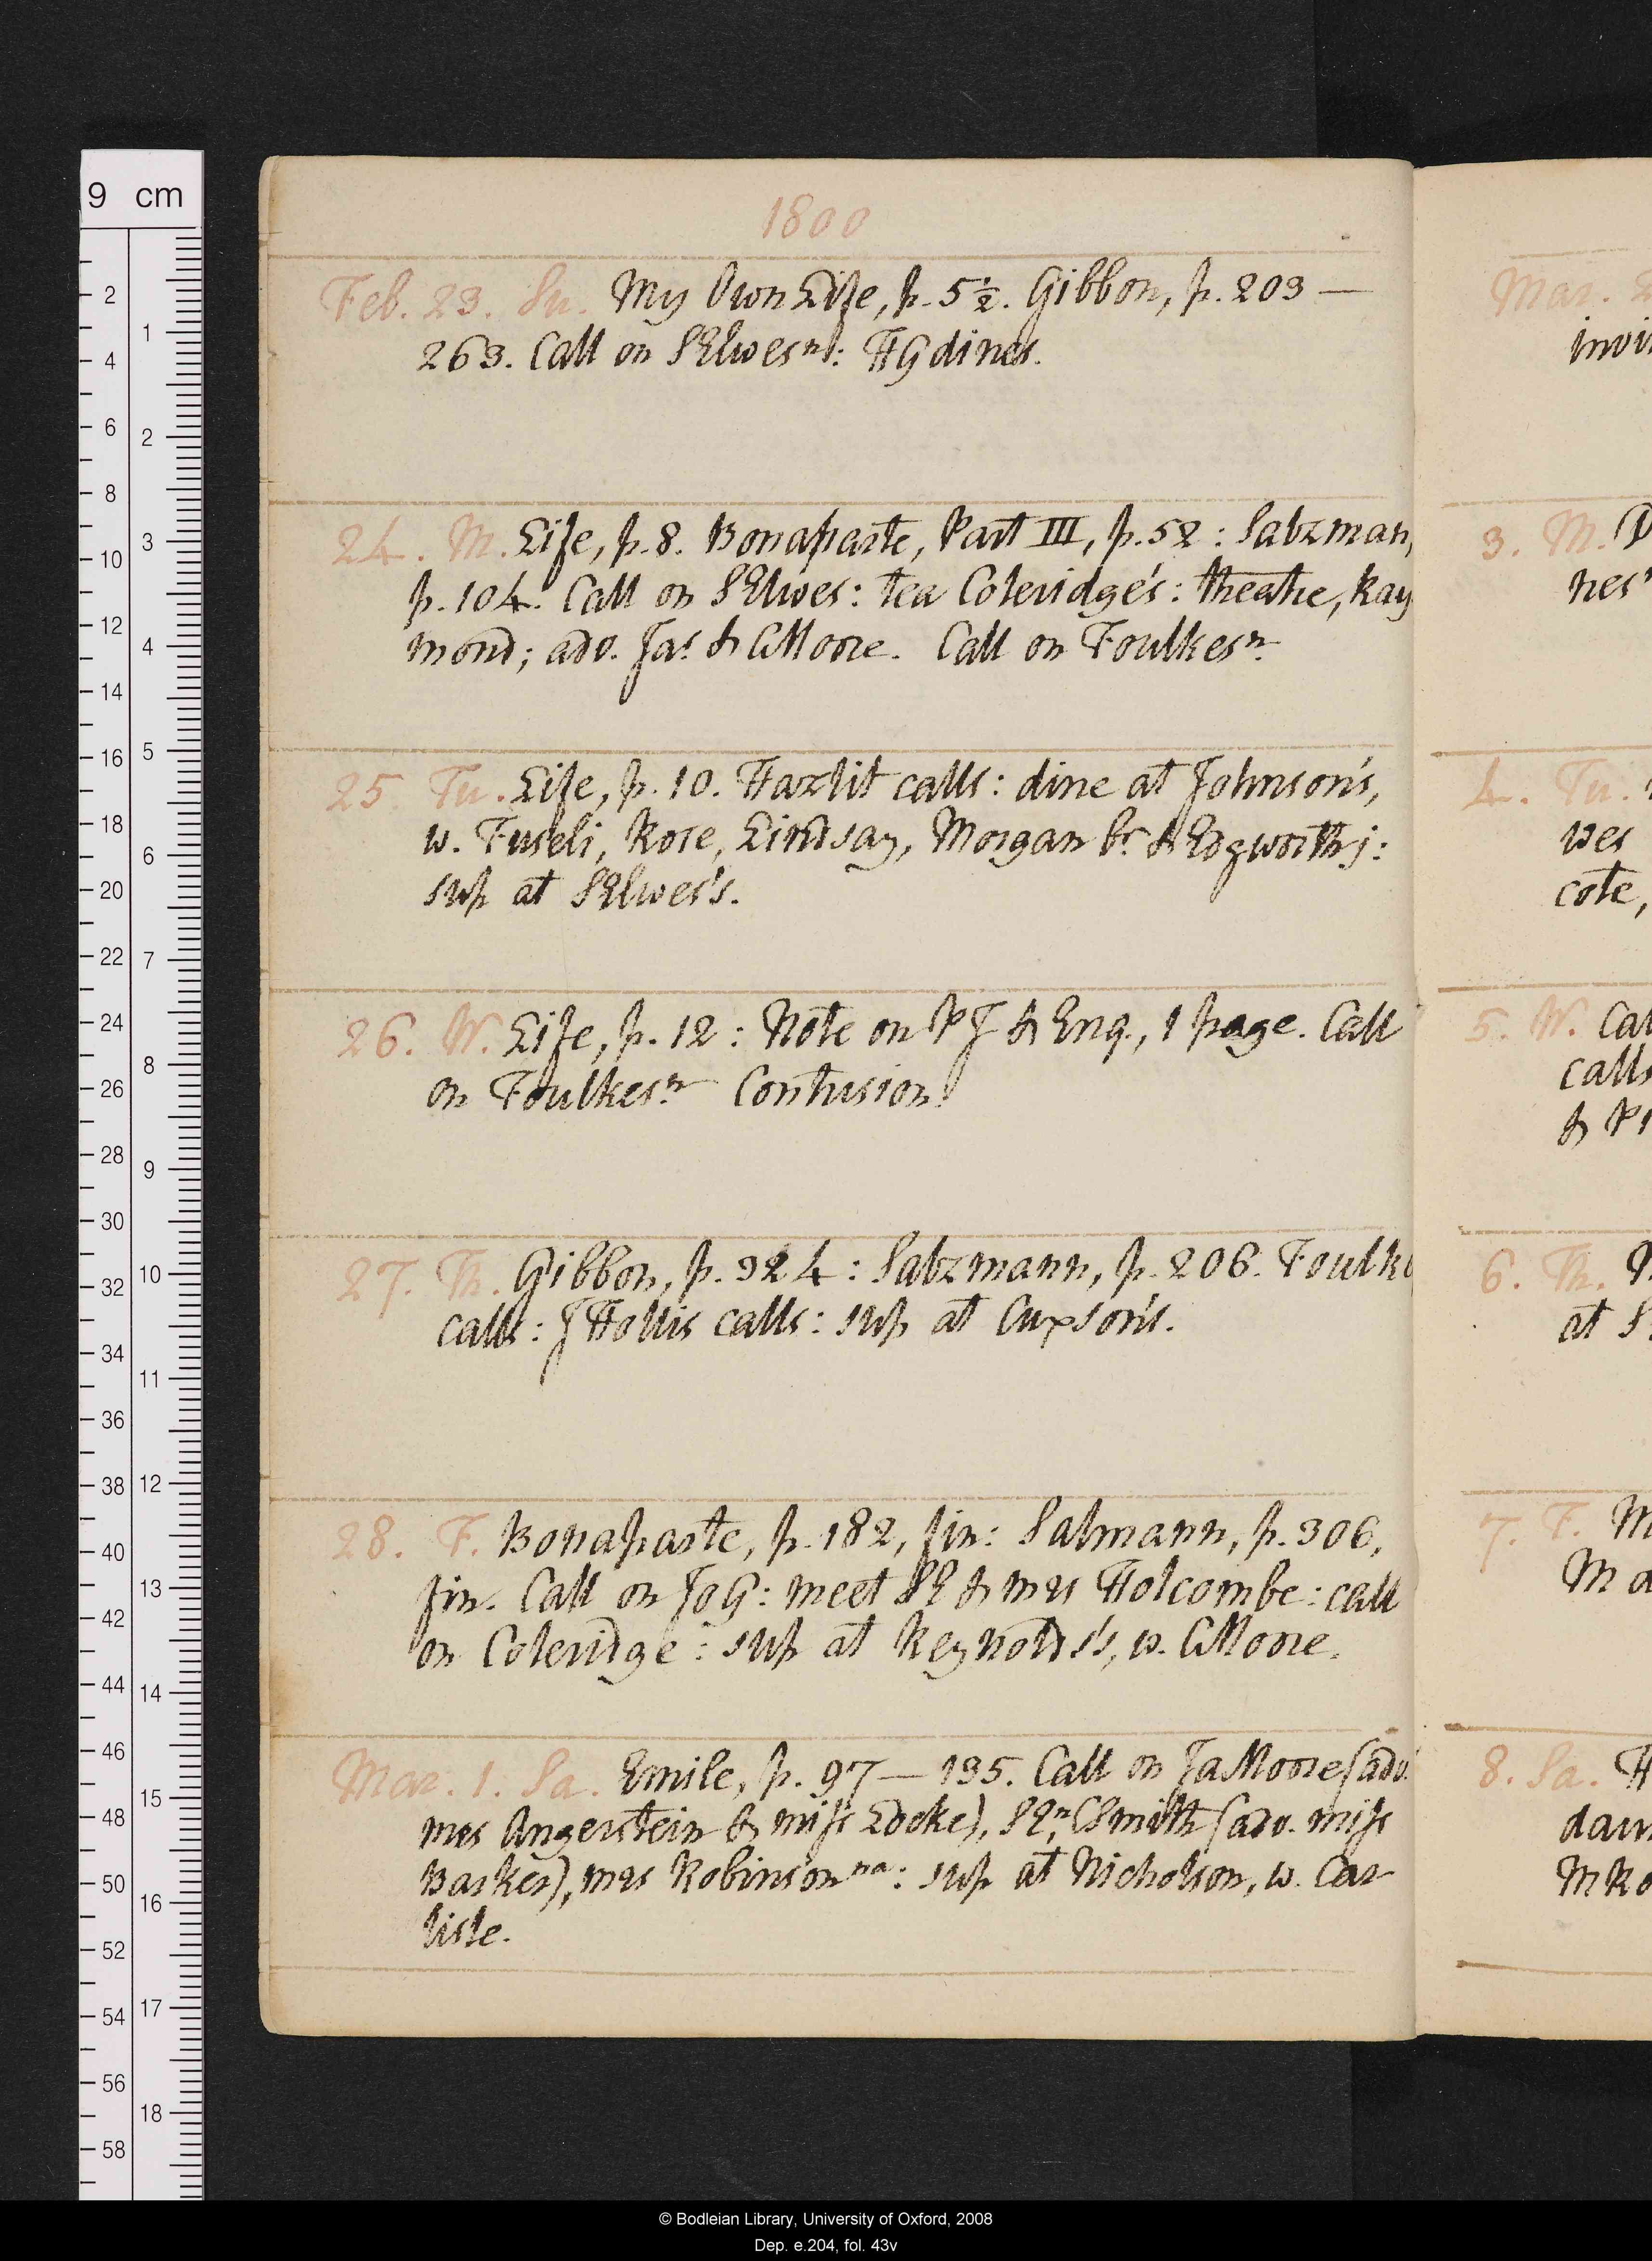 1800
Feb. 23. Su. My Own Life, p. 5½. Gibbon, p. 203—
263. Call on S Elwes n: H G dines.
24. M. Life, p. 8. Bonaparte, Part III, p. 52: Salzman,
p. 104. Call on S Elwes: tea Coleridge's: theatre, Ray
mond; adv. Jas & C Moore. Call on Foulkes n.
25 Tu. Life, p. 10. Hazlit calls: dine at Johnson's,
w. Fuseli, Rose, Lindsay, Morgan br. & Edgworth j:
sup at S Elwes's.
26. W. Life, p. 12: Note on PJ & Enq., 1 page. Call
on Foulkes n. Contusion.
27. Th. Gibbon, p. 324: Salzmann, p. 206. Foulke
calls: J Hollis calls: sup at Cuxson's.
28. F. Bonaparte, p. 182, fin: Salmann, p. 306,
fin. Call on Jo G: meet SE & mrs Holcombe: call
on Coleridge: sup at Reynolds's, w. C Moore.
Mar. 1. Sa. Emile, p. 97—135. Call on Ja Moore (adv.
mrs Angerstein & miss Locke), SE n, C Smith (adv. miss
Barker), mrs Robinson na: sup at Nicholson, w. Car
lisle.
Mar. 2
invi
3. M.
nes
4. Tu.
wes
cote,
5. W. Cal
calls
& Pi
6. Th.
at S
7. F. M
M a
8. Sa. H
dau
M Ro
9 cm
2
4
6
8
10
12
14
16
18
20
22
24
26
28
30
32
34
36
38
40
42
44
46
48
50
52
54
56
58
1
2
3
4
5
6
7
8
9
10
11
12
13
14
15
16
17
18
© Bodleian Library, University of Oxford, 2008
Dep. e.204, fol. 43v